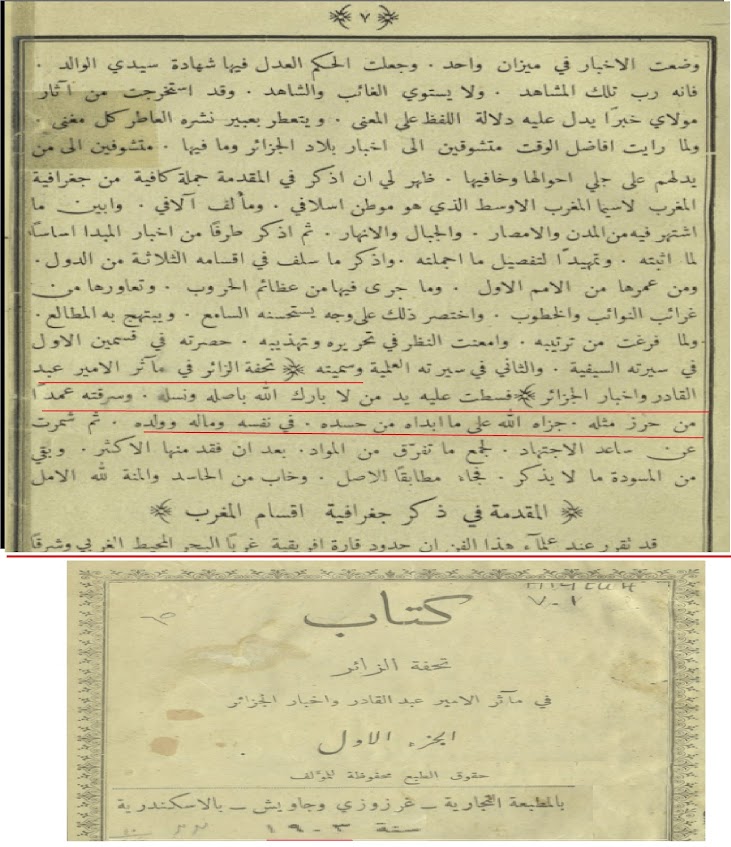 ٧
وضعت الاخبار في ميزان واحد . وجعلت الحكم العدل فيها شهادة سيدي الوالد .
فانه رب تلك المشاهد . ولا يستوي الغائب والشاهد . وقد استخرجت من آثار
مولاي خبرًا يدل عليه دلالة اللفظ على المعنى . ويتعطر بعبير نشره العاطر كل مغنى .
ولما رايت افاضل الوقت متشوقين الى اخبار بلاد الجزائر وما فيها . متشوفين الى من
يدلهم على جلي احوالها وخافيها . ظهر لي ان اذكر في المقدمة جملة كافية من جغرافية
المغرب لاسيما المغرب الاوسط الذي هو موطن اسلافي . ومألف آلافي . وابين ما
اشتهر فيه من المدن والامصار . والجبال والانهار . ثم اذكر طرفًا من اخبار المبدا اساسًا
لما اثبته . وتمهيدًا لتفصيل ما اجملته . واذكر ما سلف في اقسامه الثلاثة من الدول .
ومن عمرها من الامم الاول . وما جرى فيها من عظائم الحروب . وتعاورها من
غرائب النوائب والخطوب . واختصر ذلك على وجه يستحسنه السامع . ويبتهج به المطالع .
ولما فرغت من ترتيبه . وامعنت النظر في تحريره وتهذيبه . حصرته في قسمين الاول
في سيرته السيفية . والثاني في سيرته العلمية وسميته تحفة الزائر في مآثر الامير عبد
القادر واخبار الجزائر فسطت عليه يد من لا بارك الله باصله ونسله . وسرقته عمدًا
من حرز مثله . جزاه الله على ما ابداه من حسده . في نفسه وماله وولده . ثم شمرت
عن ساعد الاجتهاد . لجمع ما تفرق من المواد . بعد ان فقد منها الاكثر . وبقي
من المسودة ما لا يذكر . فجاء مطابقًا للاصل . وخاب من الحاسد والمنة لله الامل
المقدمة في ذكر جغرافية اقسام المغرب
قد تقرر عند علمآء هذا الفن ان حدود قارة افريقية غربًا البحر المحيط الغربي وشرقًا
٧-١
كتاب
تحفة الزائر
في مآثر الامير عبد القادر واخبار الجزائر
الجزء الاول
حقوق الطبع محفوظة للمؤلف
بالمطبعة التجارية _ غرزوزي وجاويش _ بالاسكندرية
سنة ١٩٠٣